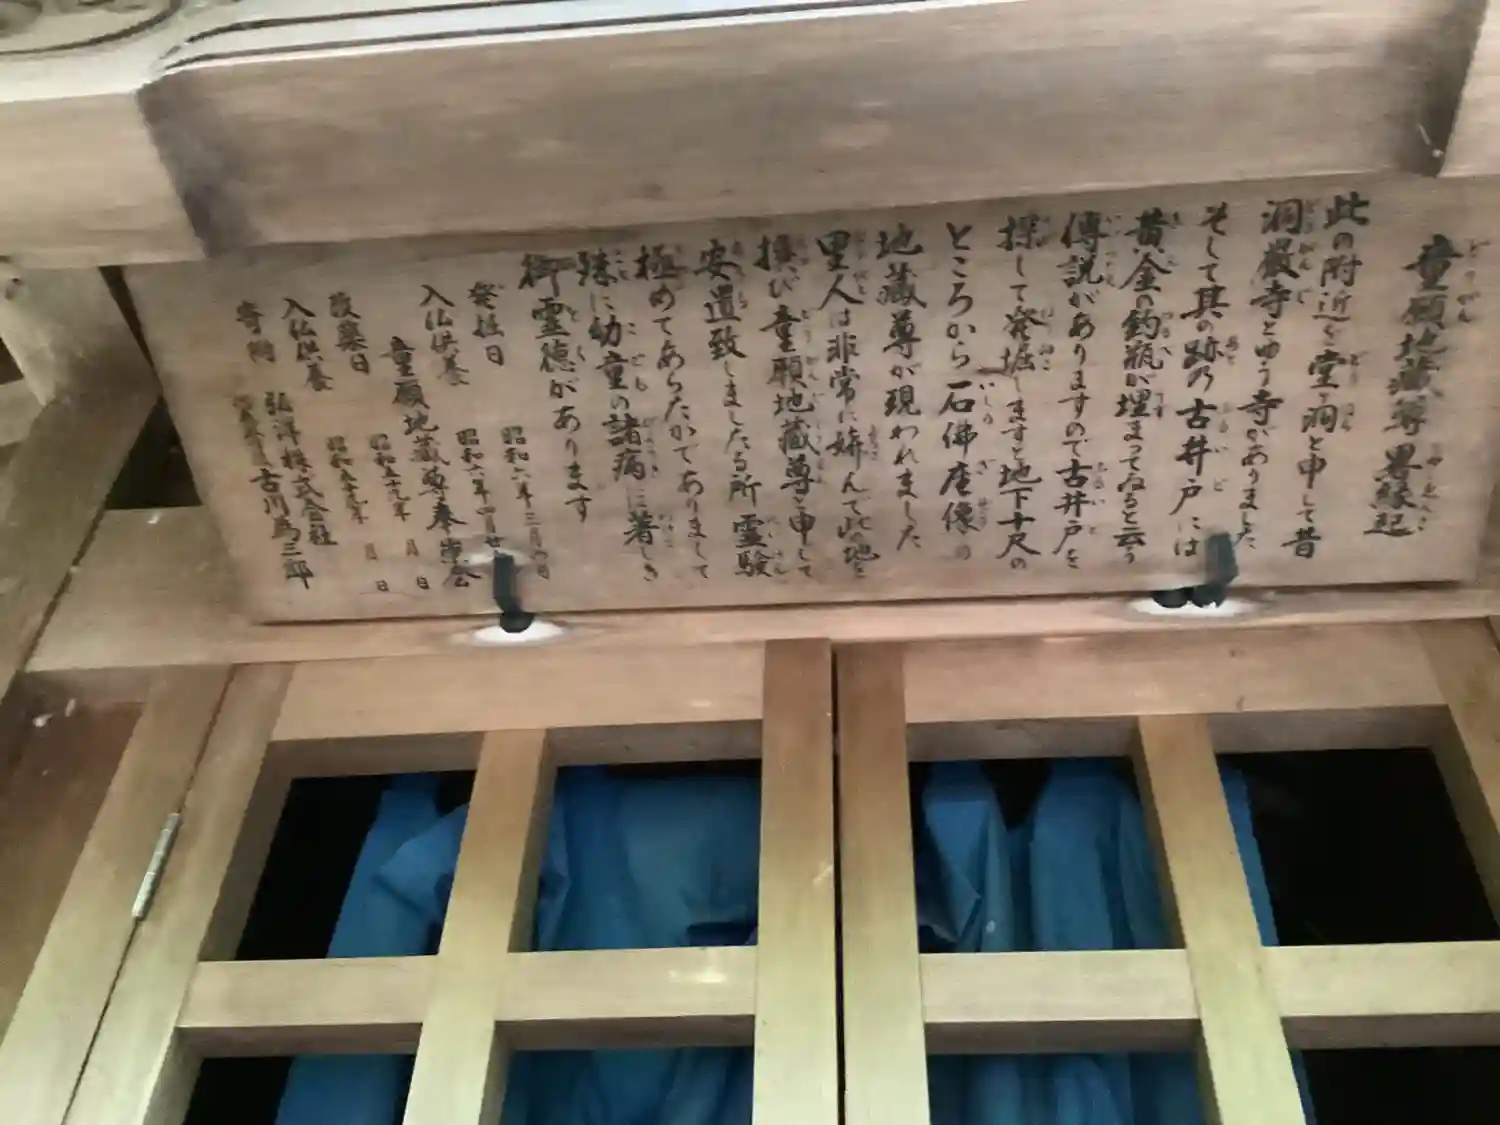 童願地蔵尊畧縁起
此の附近を堂ヶ洞と申して昔
洞巌寺とゆう寺がありました
そして其の跡の古井戸には
黄金の釣瓶が埋まってゐると云う
傳説がありますので古井戸を
探して発掘しますと地下十尺の
ところから石佛座像の
地蔵尊が現われました
里人は非常に喜んで此の地を
撰び童願地蔵尊と申して
安置致しましたる所霊験
極めてあらたかでありまして
殊に幼童の諸病に著しき
御霊徳があります
発掘日 昭和六年三月 日
入仏供養 昭和六年四月廿
童願地蔵尊奉賛会
改築日 昭和五十九年 月 日
入仏供養 昭和五十九年 月 日
寄附 弘洋株式会社
古川為三郎